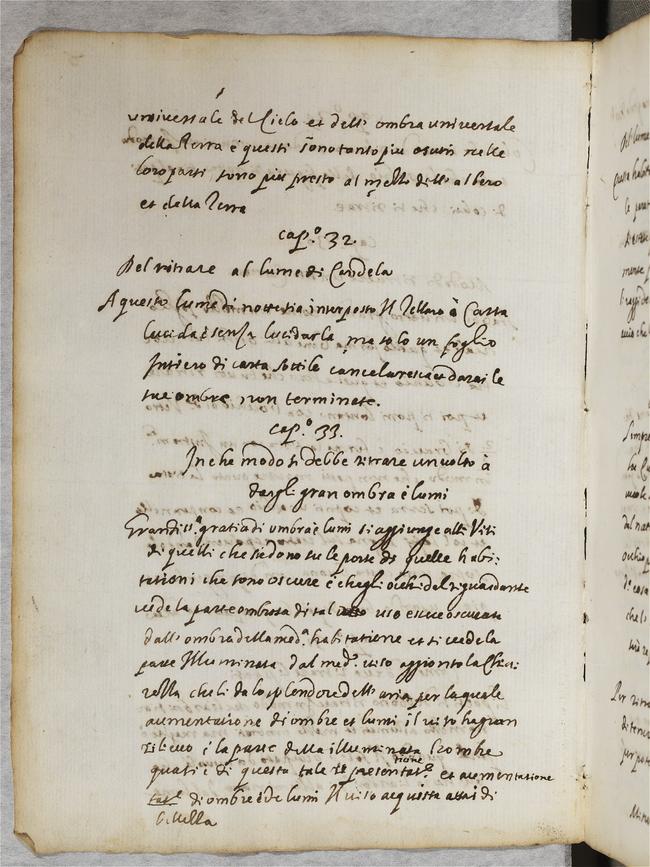 universale del Cielo et dell' ombra universale
della Terra è questi sono tanto piu oscuri nelle
loro parti sono piu presto al mezzo dell' albero
et della Terra
cap.º 32.
Del ritrare al lume di Candela
A questo lume di notte sia interposto Il Tellaro ò Carta
lucida è senza lucidarla, ma solo un foglio
Intiero di carta sottile cancelaresca et darai le
tue ombre non terminate.
cap.º 33.
In che modo si debbe ritrare un volto à
dargli gran ombra è lumi
Grandiss.ª gratia di umbra è lumi si aggiunge alli Visi
di quelli che sedono su le porte di quelle habi:
tationi che sono oscure è che gli ochi del riguardante
vede la parte ombrosa di tal viso esser oscurata
dall' ombra della med.ª habitatione et si vede la
parte Illuminata dal med.º viso aggionto la Chia
rezza che li da lo splendore dell' aria per la quale
aumentatione di ombre et lumi il viso ha gran
rilievo è la parte della illuminata l'ombre
quasi è di questa tale representatione et aumentatione
di ombre è de lumi Il viso acquista assai di
bellezza